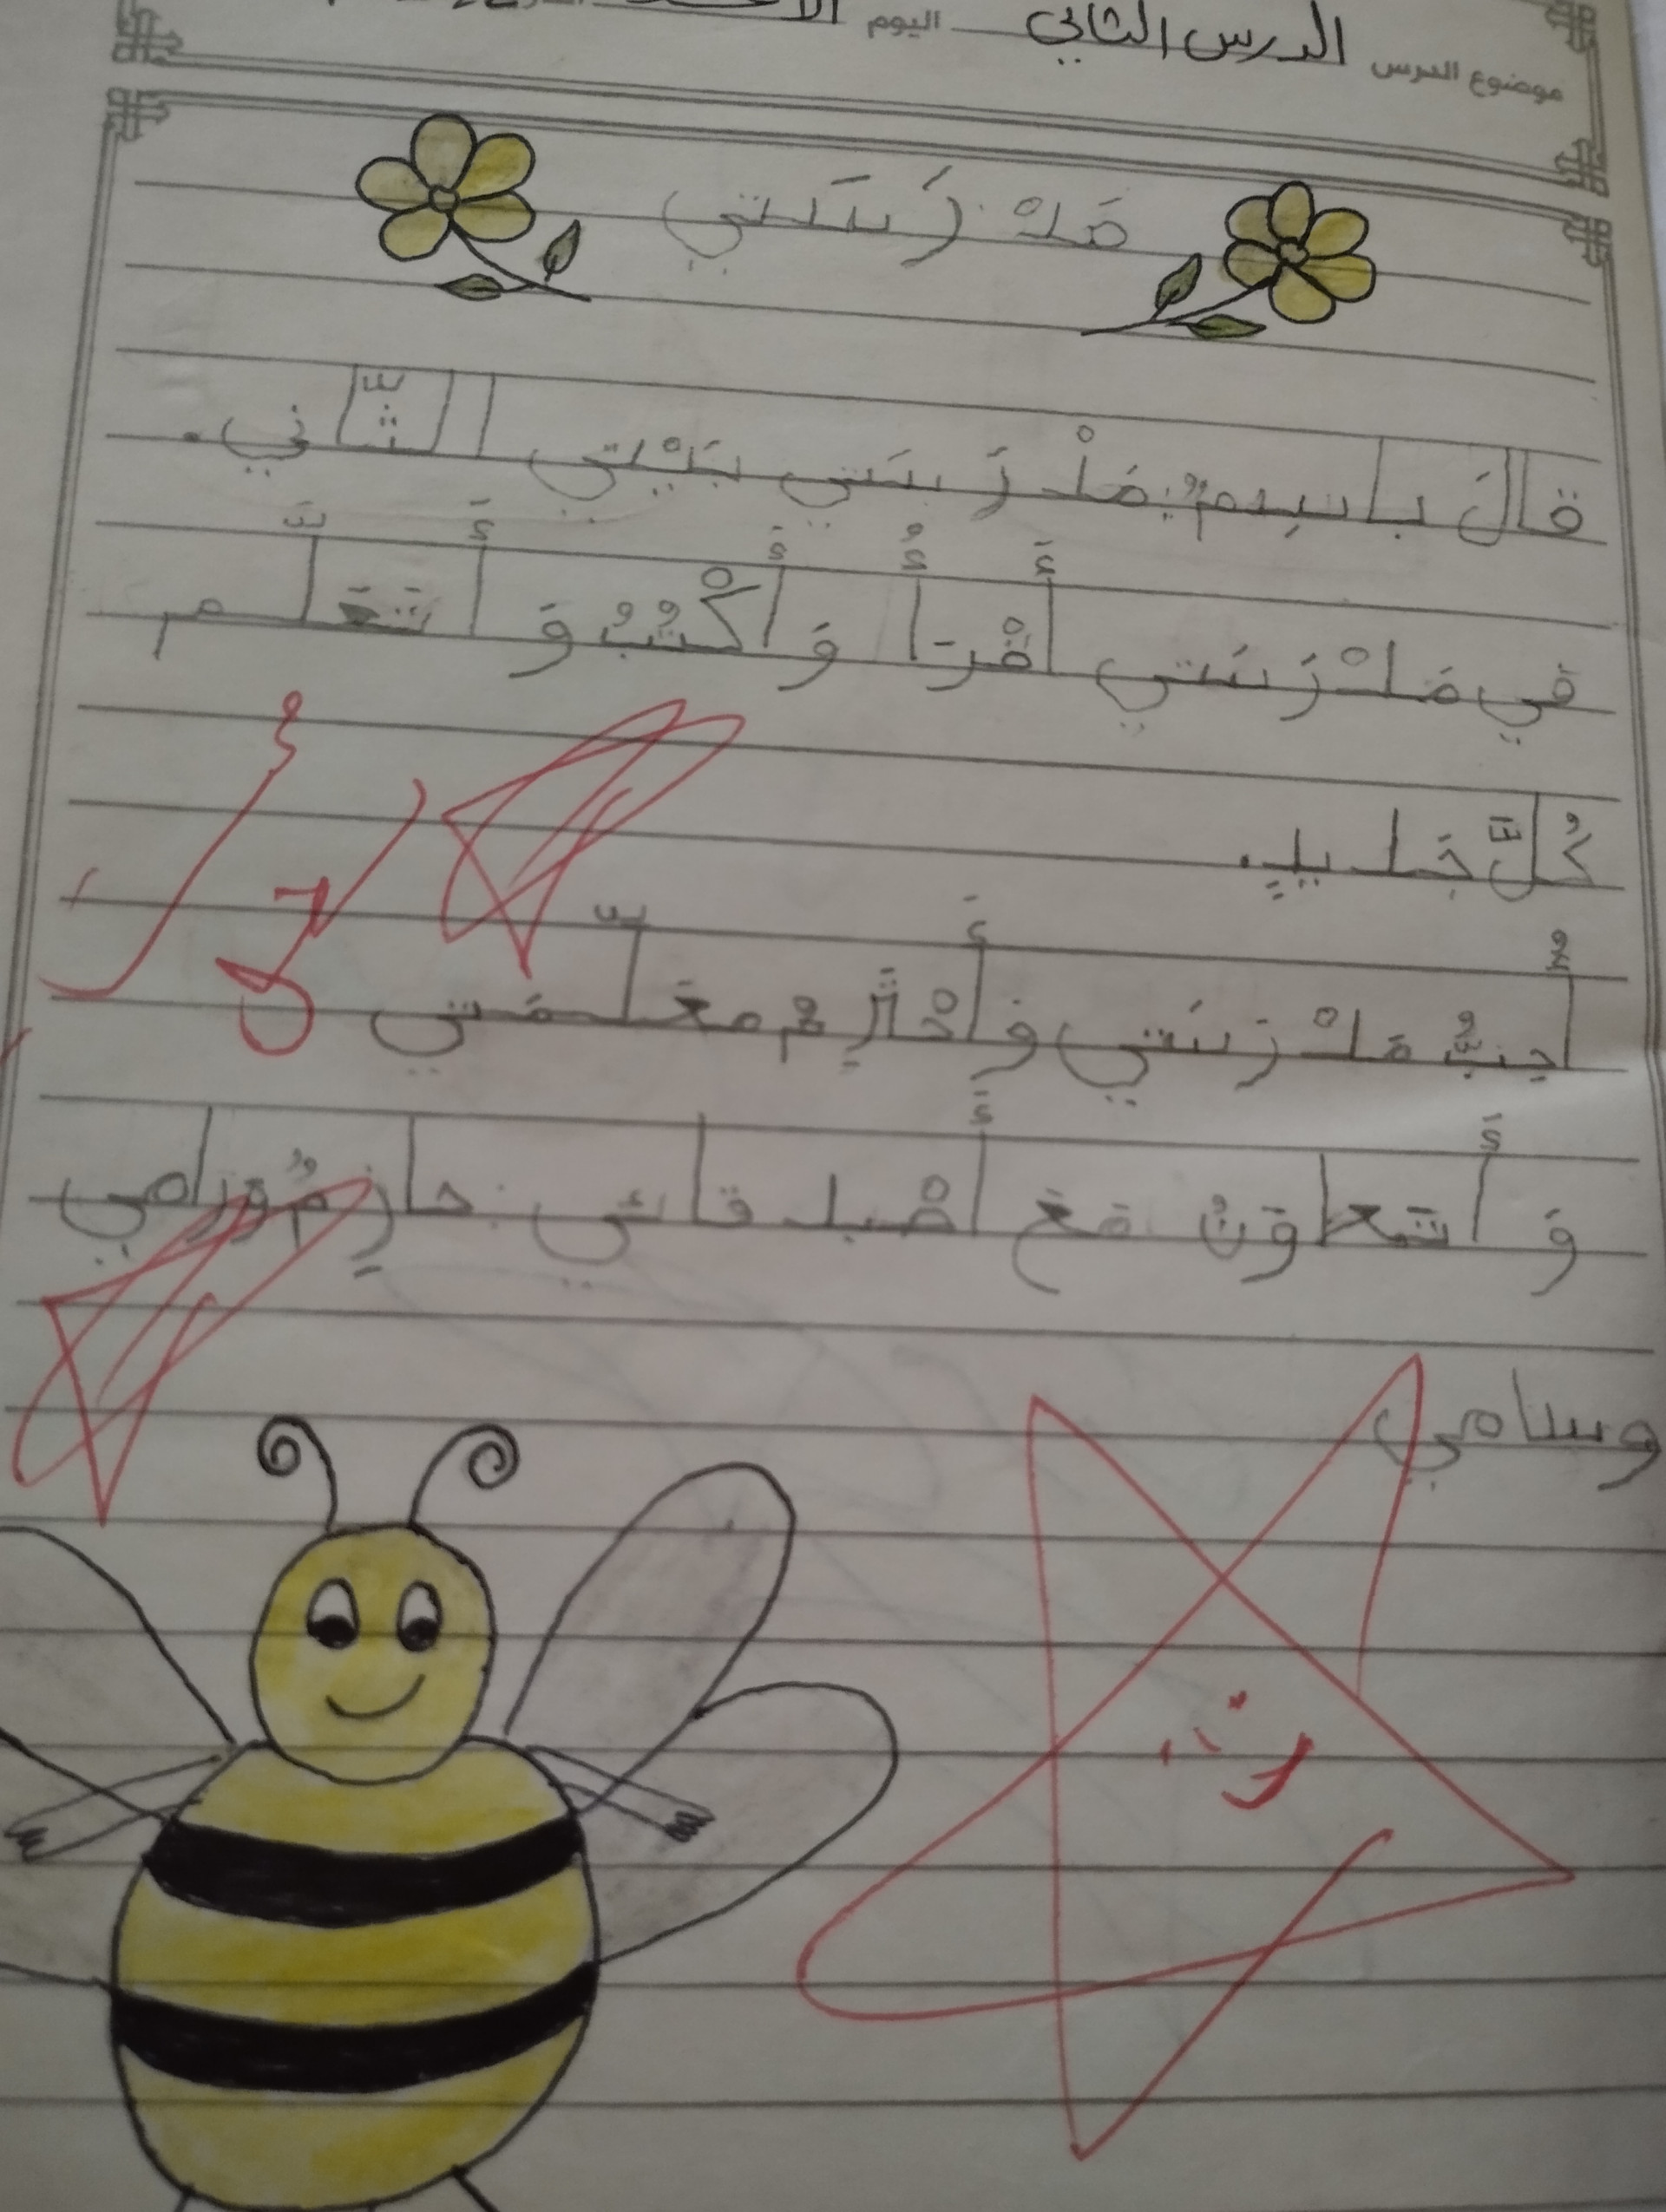 موضوع الدرس الدرس الثاني اليوم
مَدْرَسَتي
قالَ باسِمٌ: مَدْرَسَتي بَيْتي الثّاني.
في مَدْرَسَتي أَقْرَأُ وَأَكْتُبُ وَ أَتَعَلَّم
كُلَّ جَديدٍ.
أُحِبُّ مَدْرَسَتي وَأَحْتَرِمُ معَلّمَتي
وَ أَتَعاوَنُ مَعَ أَصْدِقائي حازِمُ ورامي
وسامي